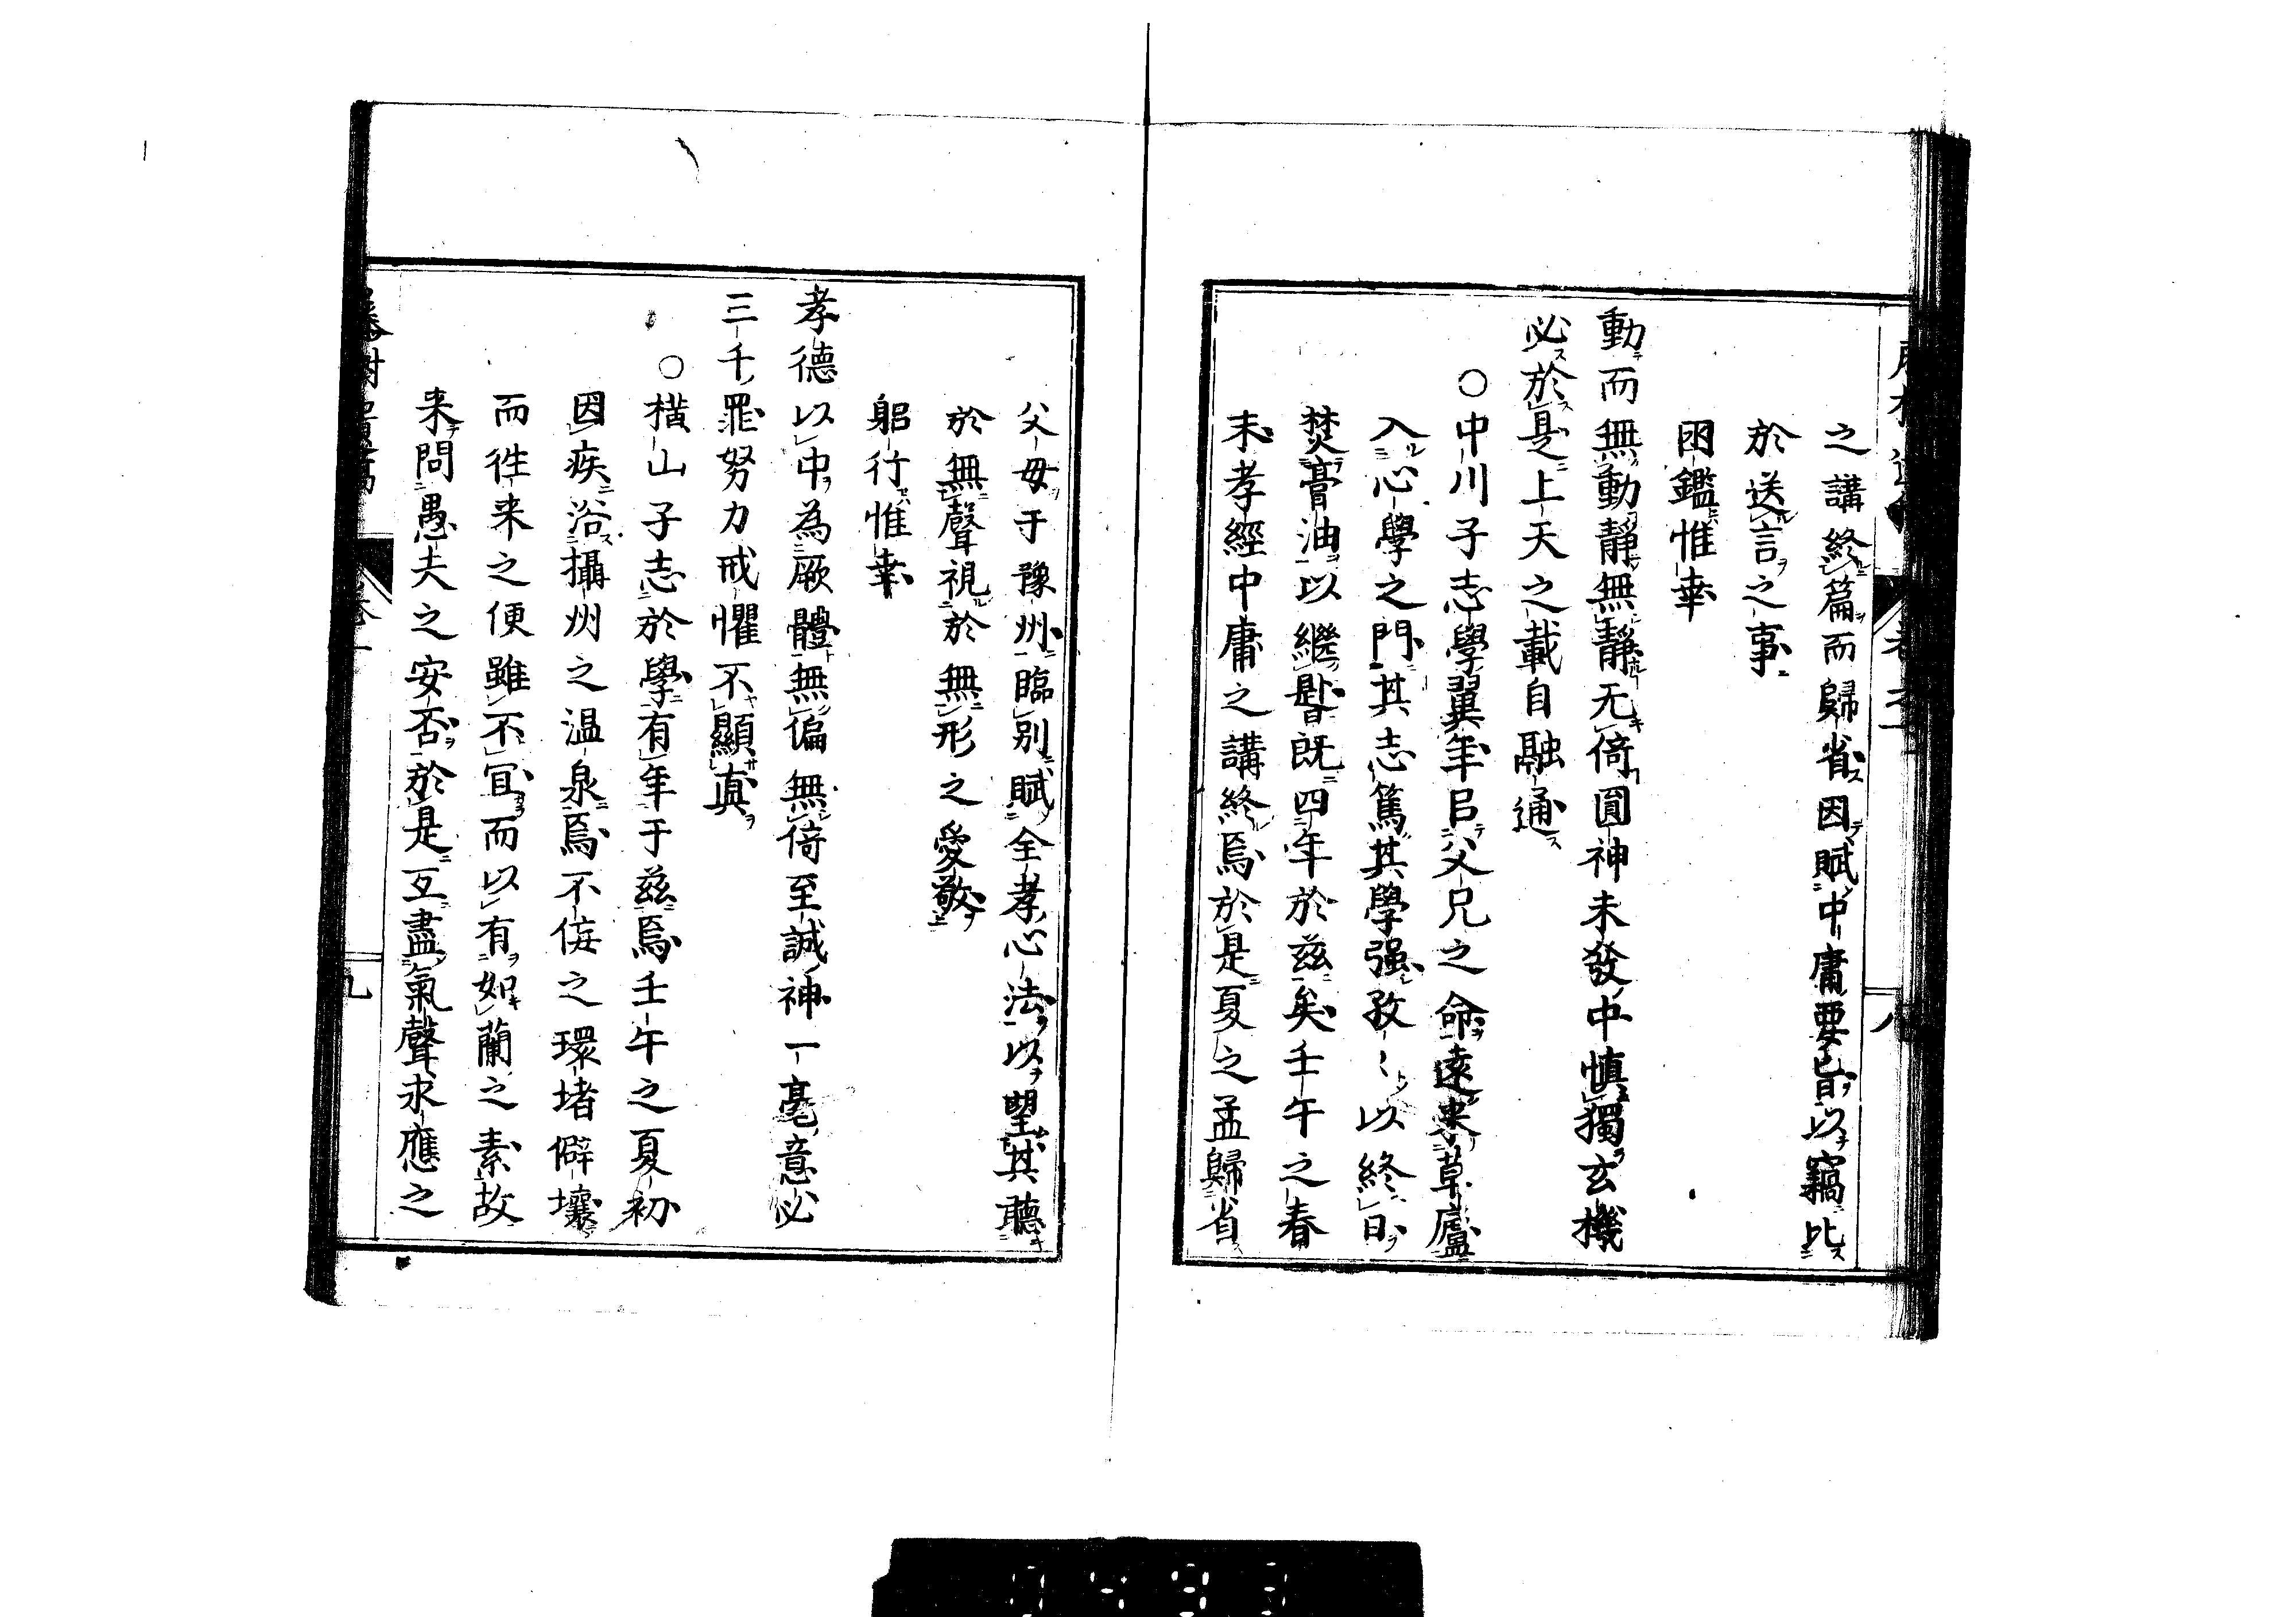 之講終篇而歸省因賦中庸要旨以竊比
於送言之事
囹鑑惟幸
動而無動靜無靜无倚圓神未發中慎獨玄機
必於是上天之載自融通
○中川子志學翼年㠯父兄之命遠來草廬
入心學之門其志篤其學强孜〻以終日
焚膏油以繼晷既四年於兹矣壬午之春
末孝經中庸之講終焉於是夏之孟歸省
父母于豫州臨別賦全孝心法以望其聽
於無聲視於無形之愛敬
躬行惟幸
孝德以中為厥體無偏無倚至誠神一毫意必
三千罪努力戒懼不顯真
○横山子志於學有年于兹焉壬午之夏初
因疾浴攝州之温泉焉不佞之環堵僻壤
而徃来之便雖不冝而以有如蘭之素故
来問愚夫之安否於是互盡氣聲求應之
九
八